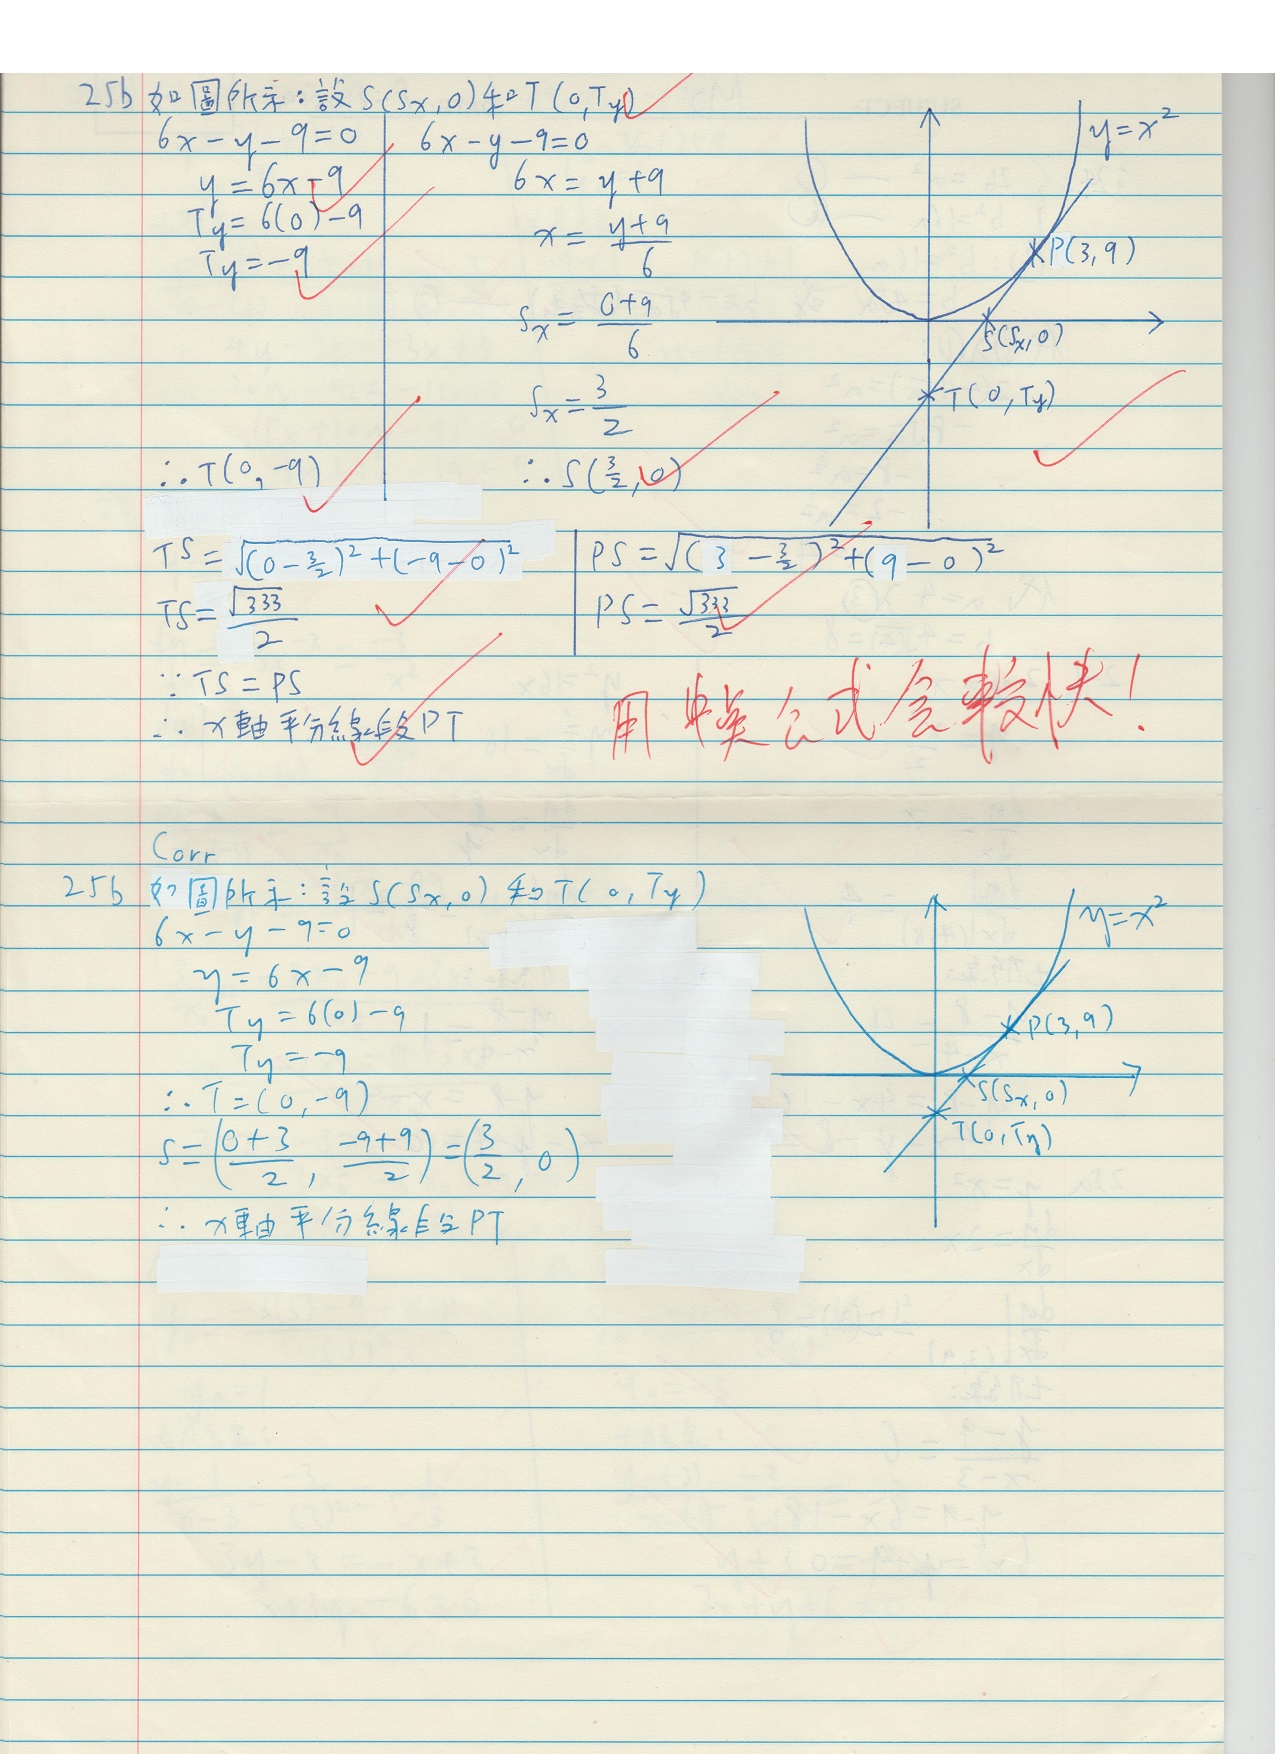 25b 如圖所示：設S(Sx,0)和T(0,Ty)
6x-y-9=0
y=6x-9
Ty=6(0)-9
Ty=-9
∴T(0,-9)
6x-y-9=0
6x=y+9
x=(y+9)/6
Sx=(0+9)/6
Sx=3/2
∴S(3/2,0)
y=x²
P(3,9)
S(Sx,0)
T(0,Ty)
TS=√((0-3/2)²+(-9-0)²)
TS=√333/2
PS=√((3-3/2)²+(9-0)²)
PS=√333/2
∵TS=PS
∴x軸平分線段PT
用 公式會較快！
Corr
25b 如圖所示：設S(Sx,0)和T(0,Ty)
6x-y-9=0
y=6x-9
Ty=6(0)-9
Ty=-9
∴T=(0,-9)
S=((0+3)/2,(-9+9)/2)=(3/2,0)
∴x軸平分線段PT
y=x²
P(3,9)
S(Sx,0)
T(0,Ty)